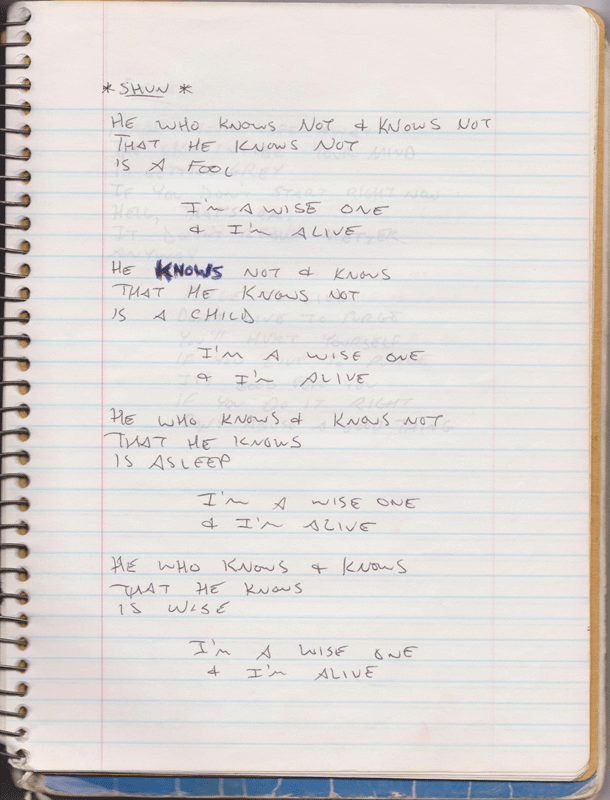 * SHUN *
HE WHO KNOWS NOT & KNOWS NOT
THAT HE KNOWS NOT
IS A FOOL
I'M A WISE ONE
& I'M ALIVE
HE KNOWS NOT & KNOWS
THAT HE KNOWS NOT
IS A CHILD
I'M A WISE ONE
& I'M ALIVE
HE WHO KNOWS & KNOWS NOT
THAT HE KNOWS
IS ASLEEP
I'M A WISE ONE
& I'M ALIVE
HE WHO KNOWS & KNOWS
THAT HE KNOWS
IS WISE
I'M A WISE ONE
& I'M ALIVE